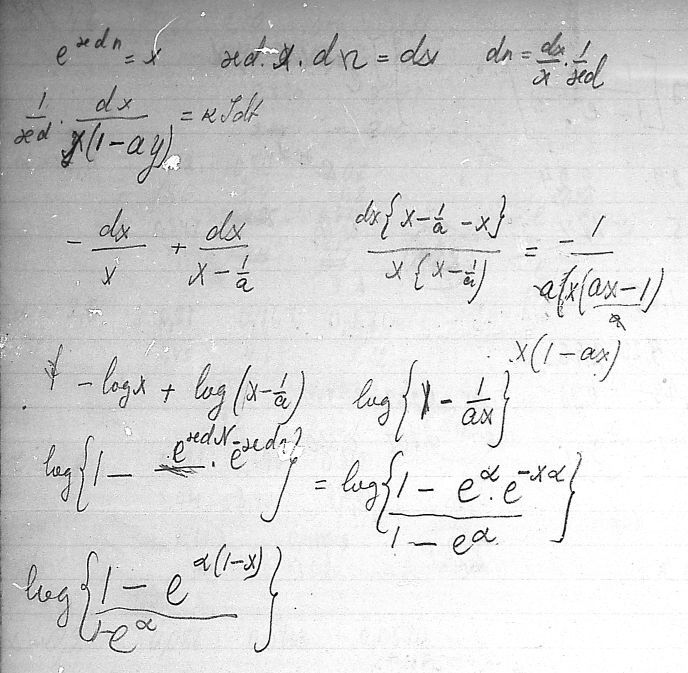 e^{ϰdn} = x ϰd · x · dn = dx dn = dx/x · 1/ϰd
1/ϰd · dx/x(1 - ay) = κJdt
- dx/x + dx/(x - 1/a) dx{x - 1/a - x}/x{x - 1/a) = -1/-a{x(ax - 1)/a
x(1 - ax)
- log x + log(x - 1/a) log{1 - 1/ax}
log{1 - e^{ϰdN} · e^{-ϰdn}} = log{1 - e^α · e^{-xα}/1 - e^α}
log{1 - e^{α(1-x)}/1-e^α}